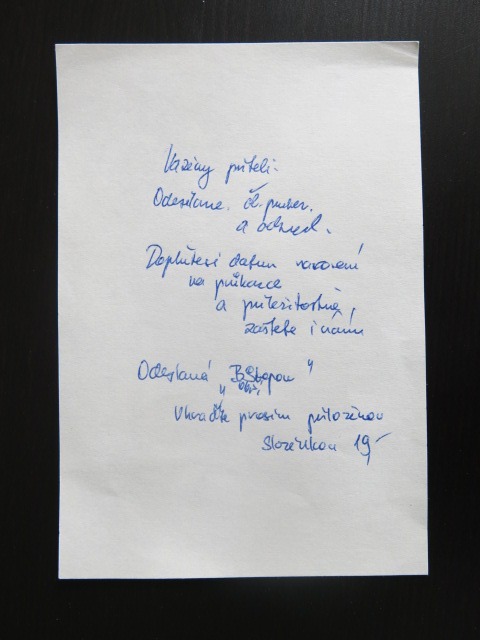 Vážený příteli.
Odesíláme. čl. průkaz.
a odznak.
Doplňte si datum narození
na průkazce
a příležitostně,
zašlete i nám
Odeslaná "
"
Uhraďte prosím přiloženou
Složenkou 19,-